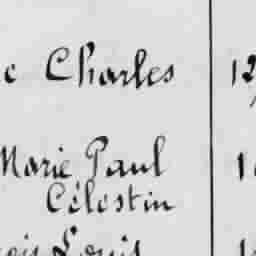 c Charles 12
Marie Paul 1
Célestin
ois Louis